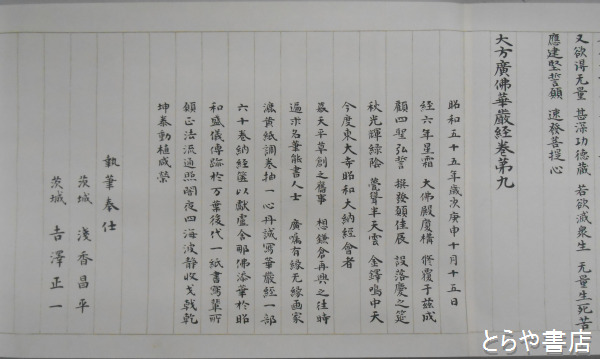 又欲得无量 甚深功徳蔵 若欲滅衆生 无量生死苦
應建堅誓願 速發菩提心
大方廣佛華嚴経巻第九
昭和五十五年歳次庚申十月十五日
経六年星霜 大佛殿廈構 修覆于茲成
顧四聖弘誓 撰撥願佳展 設落慶之筵
秋光輝緑陰 聲半天雲 金鐸鳴中天
今度東大寺昭和大納経會者
冣天平草創之舊事 想鎌倉再興之往時
遍求名筆能書人士 廣嘱有縁无縁画家
漉黄紙調巻軸一心丹誠寫華厳経一部
六十巻納経匣以獻盧舎那佛添華於昭
和盛儀傳臨於万葉後代一紙書寫輩所
願正法流通照闇夜四海波静收戈戟乾
坤泰動植咸榮
執筆奉仕
茨城 淺香昌平
茨城 吉澤正一
とらや書店